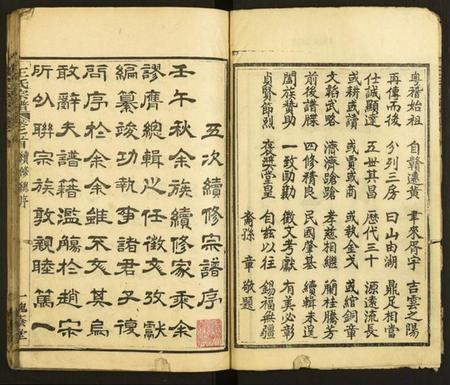 粵稽始祖 自贛遷黃 聿來胥宇 吉雲之陽
再傳而後 分列三房 曰山由湖 鼎足相當
仕誠顯達 五世其昌 歷代三十 源遠流長
或耕或讀 或賈或商 或執金戈 或綰銅章
文韜武略 濟濟蹌蹌 孝慈相繼 蘭桂騰芳
前後譜牒 四修精良 民國肇基 續輯未遑
闔族贊助 一致助勷 徵文考獻 有美必彰
貞賢節烈 褒獎堂皇 自茲以往 錫福無疆
裔孫 章 敬題
五次續修宗譜序
壬午秋余族續修家乘余
謬膺總輯之任徵文攷獻
編纂竣功執事諸君子復
問序於余余雖不文其烏
敢辭夫譜籍濫觴於趙宋
所以聯宗族敦親睦篤一
王氏宗譜 卷之首 續修總序 一